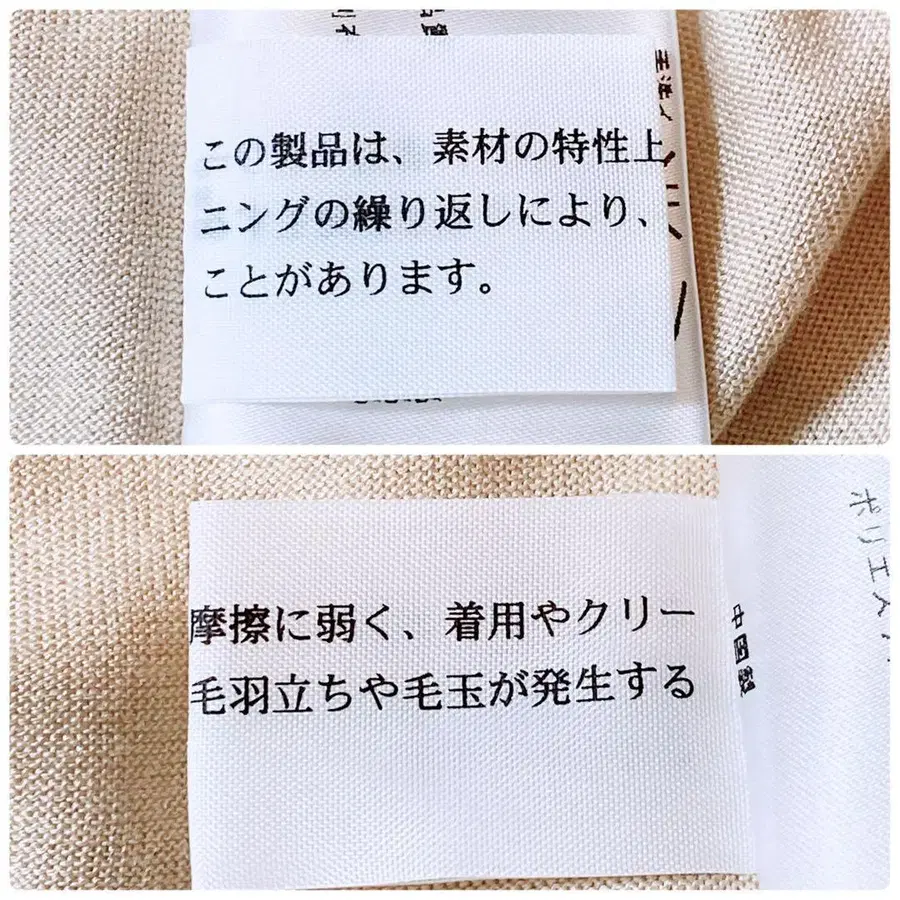 この製品は、素材の特性上
ニングの繰り返しにより、
ことがあります。
摩擦に弱く、着用やクリー
毛羽立ちや毛玉が発生する
ポリエステ
中国製